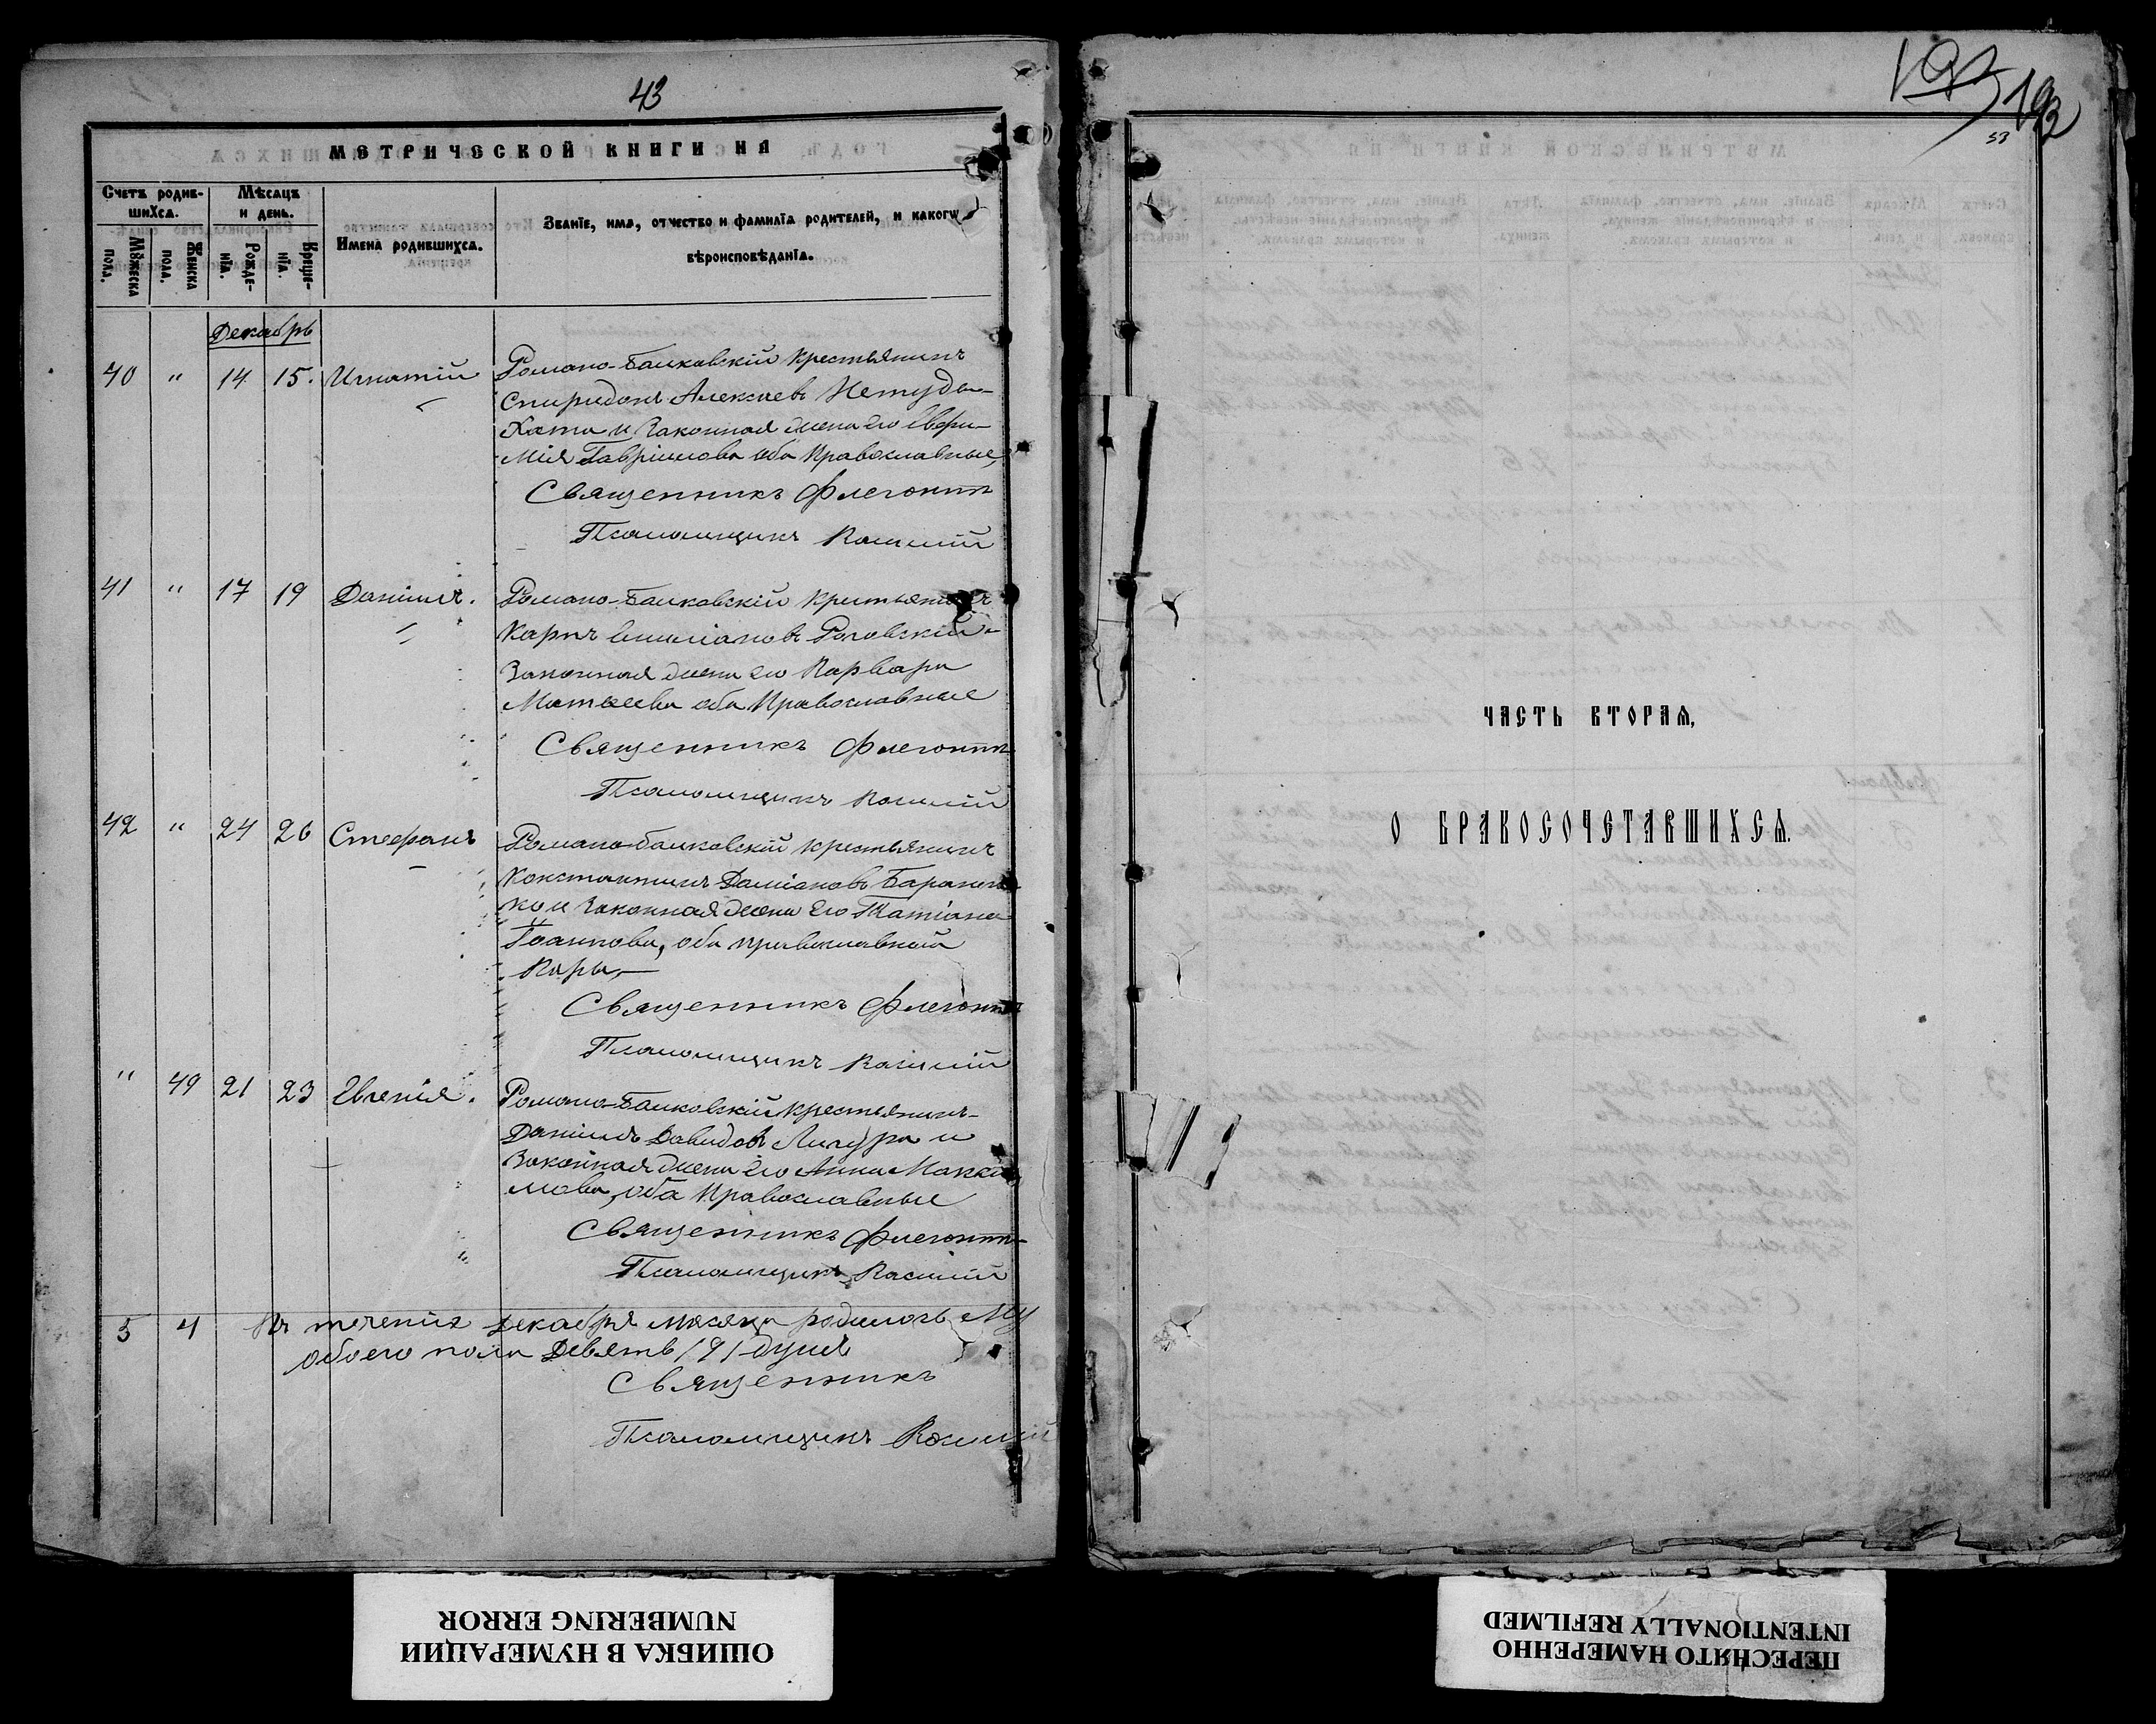 43
МЕТРИЧЕСКОЙ КНИГИ НА
Счетъ родив-
шихсѧ.
Мѣсяцъ
и день.
Имена родившихсѧ.
Званїе, имѧ, отчество и фамилїѧ родителей, и какогѡ
вѣроисповѣданїѧ.
Мꙋжеска
пола.
Женска
пола.
Рожде-
нїѧ.
Креще-
нїѧ.
Декабрь
40 " 14 15. Игнатій
Романо-Балковскій крестьянинъ
Спиридонъ Алексѣевъ Нетуды-
Хата и законная жена его Евфи-
мія Гавріилова оба Православные,
Священникъ Флегонтъ
Псаломщикъ Василій
41 " 17 19 Даніилъ.
Романо-Балковскій крестьянинъ
Карпъ Емиліановъ Роговскій
Законная жена его Варвара
Матѳеева оба Православные
Священникъ Флегонтъ
Псаломщикъ Василій
42 " 24 26 Стефанъ
Романо-Балковскій крестьянинъ
Константинъ Даміановъ Баранен-
ко и Законная жена его Татіана
Іоаннова, оба православной
Вѣры,
Священникъ Флегонтъ
Псаломщикъ Василій
" 49 21 23 Евгенія.
Романо-Балковскій крестьянинъ
Даніилъ Давидовъ и
Законная жена его Анна Макси
мова, оба Православные
Священникъ Флегонтъ
Псаломщикъ Василій
5 4 Въ теченіе декабря мѣсяца родилось
обоего пола Девять /9/ душъ
Священникъ
Псаломщикъ Василій
193
193
53
ЧАСТЬ ВТОРАѦ,
О БРАКОСОЧЕТАВШИХСѦ.
ОШИБКА В НУМЕРАЦИИ
NUMBERING ERROR
ПЕРЕСНЯТО НАМЕРЕННО
INTENTIONALLY REFILMED